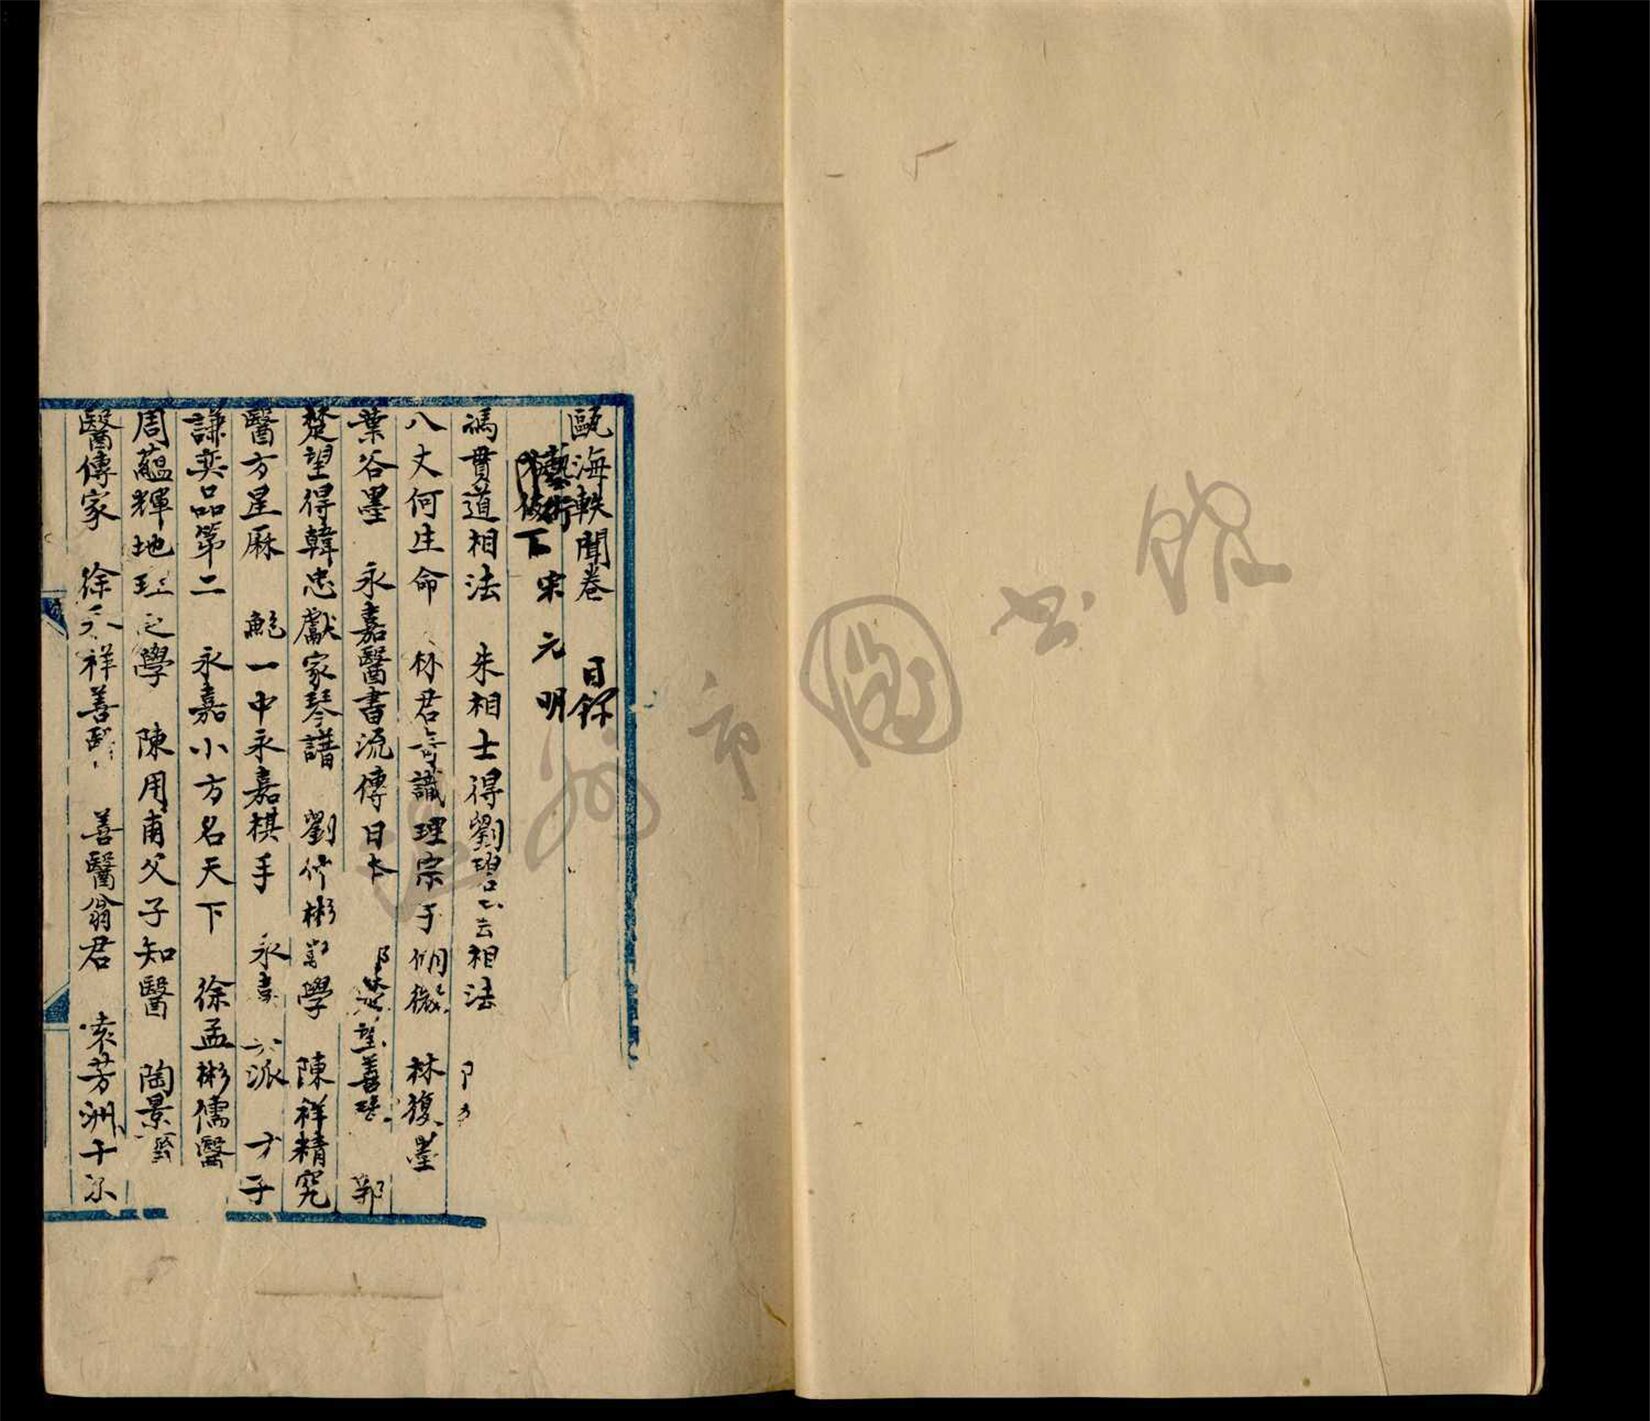 甌海軼聞卷 目錄
藝術下 宋 元 明
馮貫道相法 朱相士得劉碧云相法
八丈何生命 林君奇識理宗于側微 林復墨
葉谷墨 永嘉醫書流傳日本 楚望善琴 郭
楚望得韓忠獻家琴譜 劉竹彬學 陳祥精究
醫方星厤 鮑一中永嘉棋手 永嘉派 方子
謙奕品第二 永嘉小方名天下 徐孟彬儒醫
周蘊輝地理之學 陳用甫父子知醫 陶景
醫傳家 徐 祥善 善醫翁君 芳洲
温州市圖書館